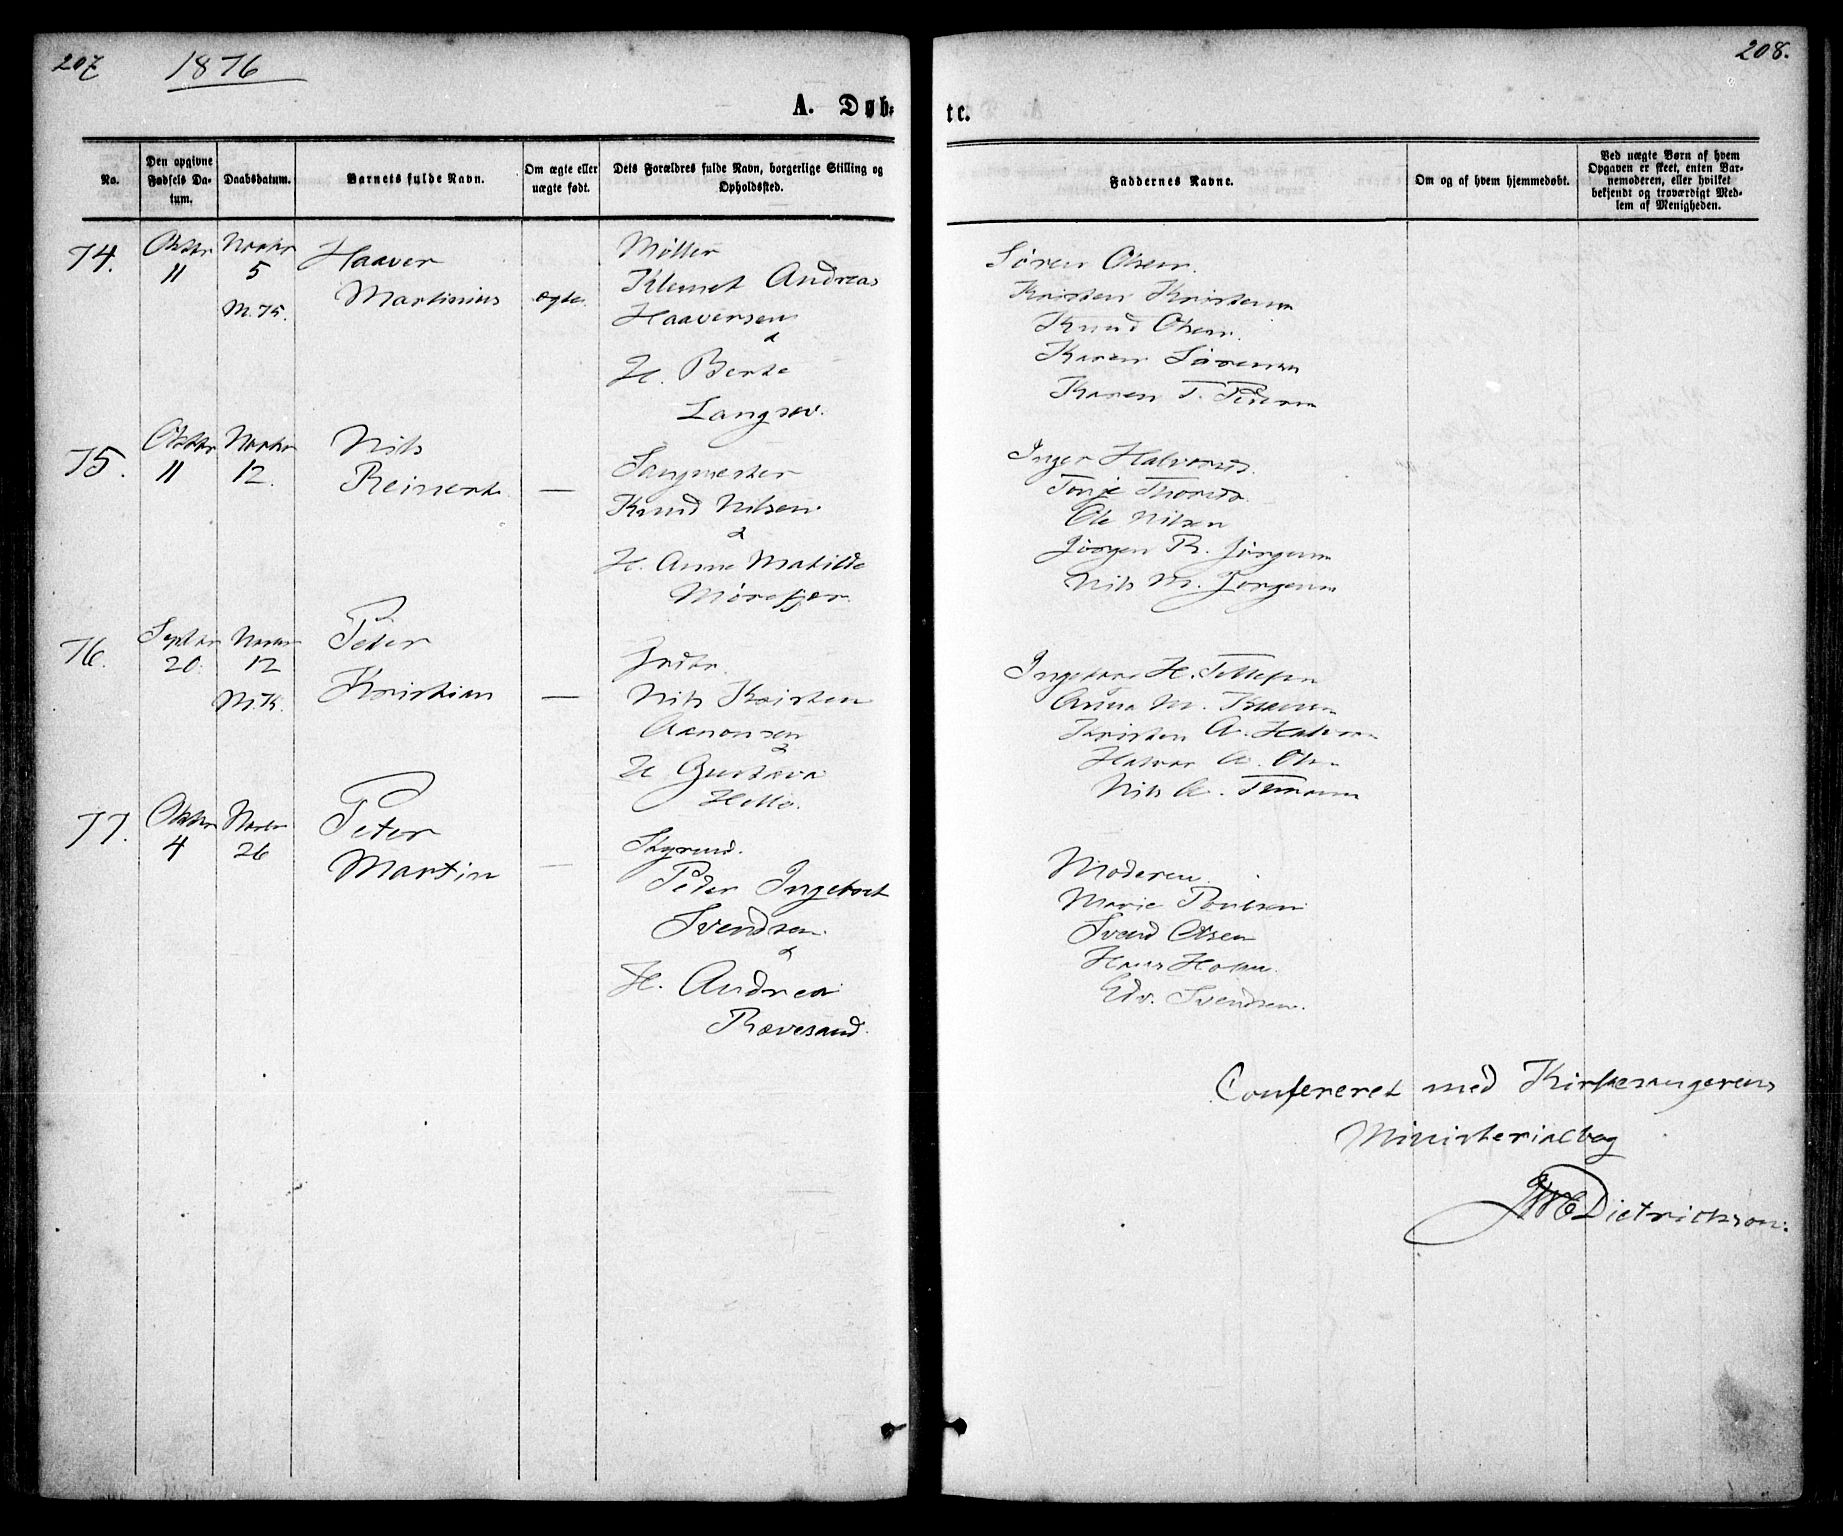 207
1876
208.
A. Døb-
te.
No.
Den opgivne Fødsels Da-tum.
Daabsdatum.
Barnets fulde Navn.
Om ægte eller uægte født.
Dets Forældres fulde Navn, borgerlige Stilling og Opholdssted.
Faddernes Navne.
Om og af hvem hjemmedøbt.
Ved uægte Børn af hvem Opgaven er skeet, enten Bar-nemoderen, eller hvilket bekjendt og troværdigt Med-lem af Menigheden.
74.
Oktbr
11
Novbr
5
M.K.
Haaver
Martinius
ægte.
Møller
Klemet Andreas
Haaversen
&
H. Berte
Langsev.
Søren Olsen.
Kristen Kristensen
Knud Olsen.
Karen Sørensen
Karen T. Pedersen
75.
Oktbr
11
Novbr
12.
Nils
Reinert.
—
Sangmester
Knud Nilsen
&
H. Anne Matilde
Mørefjær.
Inger Halvorsd.
Tonje Thorsd.
Ole Nilsen
Jørgen R. Jørgensen
Nils M. Jørgensen
76.
Septbr
20.
Novbr
12
M.K.
Peder
Kristian
—
Inder.
Nils Kristen
Aanonsen
&
H Gustava
Helle.
Ingebor H. Tellefsen
Anna M.
Kristen A. Halvorsen
Halvor A. Olsen
Nils A.
77.
Oktbr
4
Novbr
26
Peter
Martin
—
Styrmd.
Peder Ingebret
Svendsen
&
H. Andrea
Rævesand.
Moderen.
Marie Poulsen
Svend Olsen
Hans Holm.
Edv. Svendsen.
Confereret med Kirkesangerens
Ministerialbog
Dietrichson.